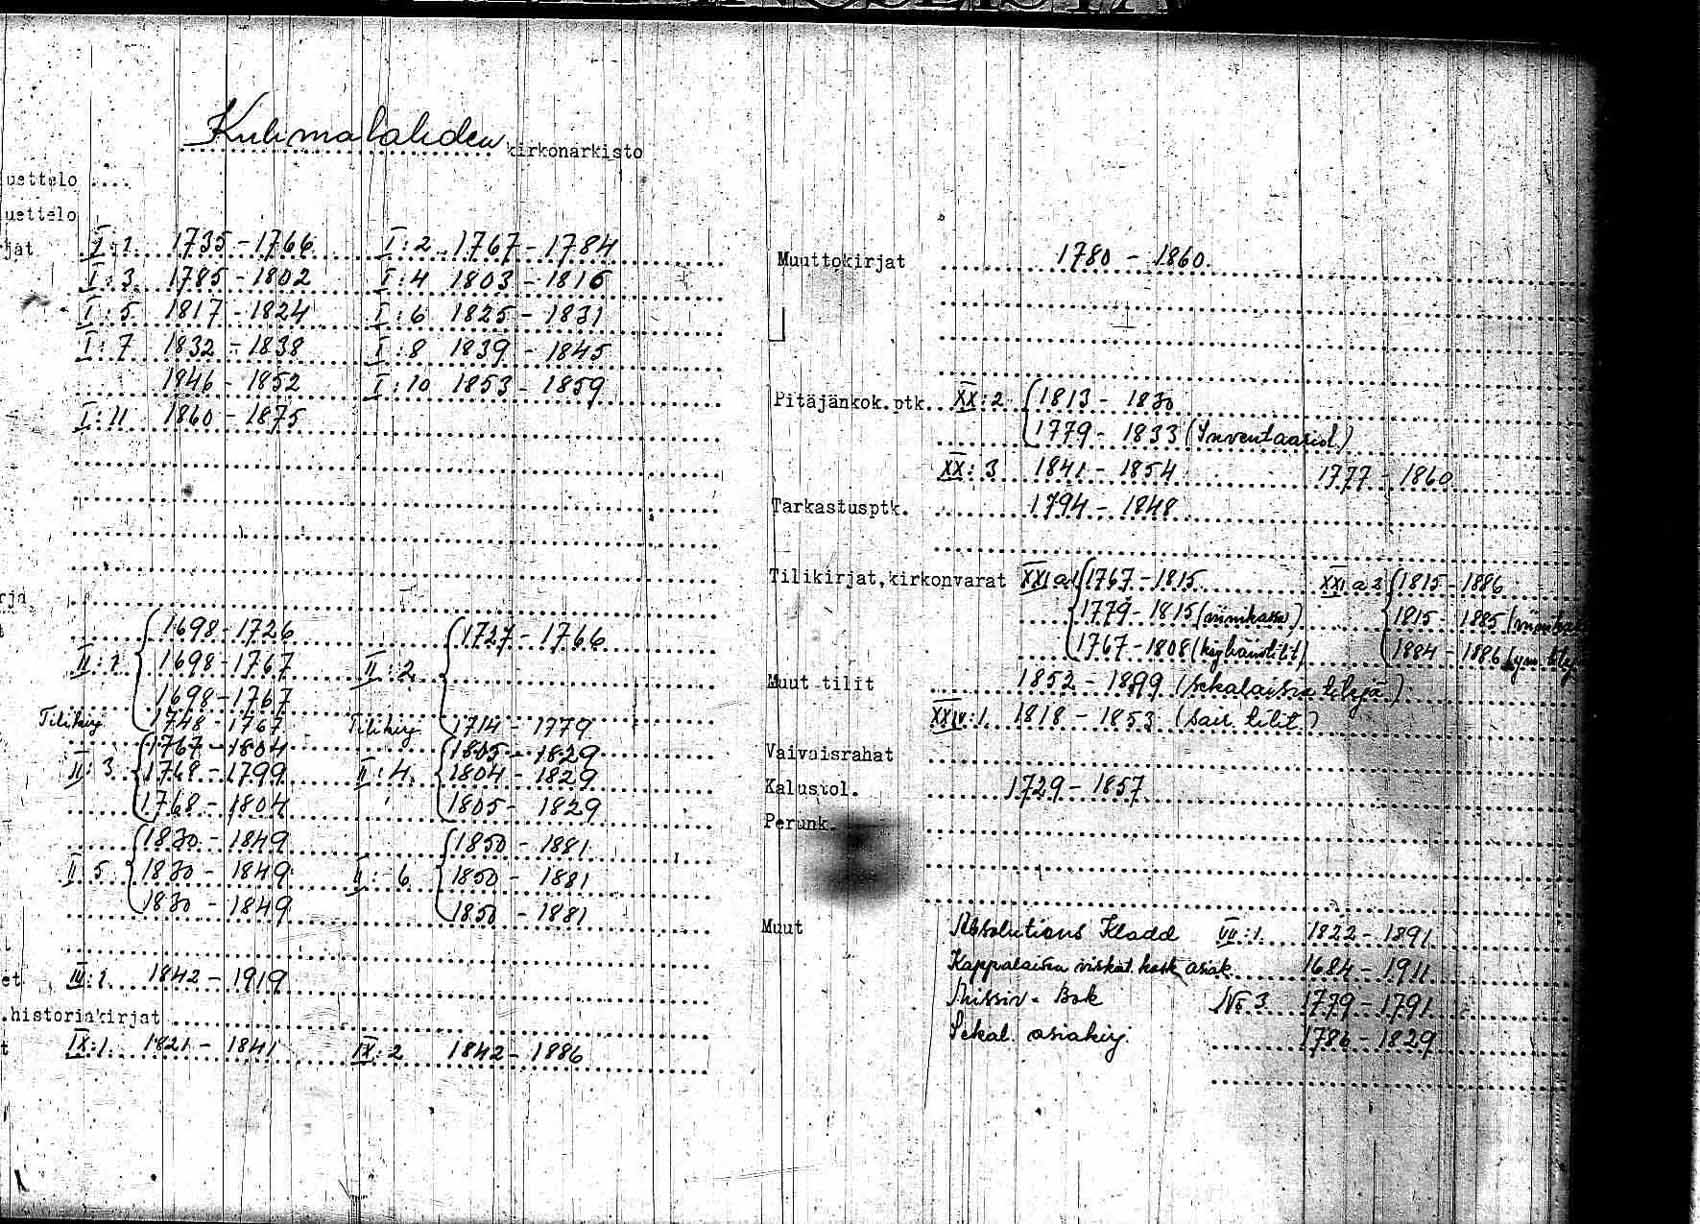 Kuhmalahden kirkonarkisto
uettelo
uettelo
jat I:1 1735-1766 I:2 1767-1784
I:3 1785-1802 I:4 1803-1816
I:5 1817-1824 I:6 1825-1831
I:7 1832-1838 I:8 1839-1845
1846-1852 I:10 1853-1859
I:11 1860-1875
rja
t 1698-1726 1727-1766
II:1 1698-1767 II:2
1698-1767
Tilikirj 1748-1767 Tilikirj 1714-1779
1767-1804 1805-1829
II:3 1768-1799 II:4 1804-1829
1768-1804 1805-1829
1830-1849 1850-1881
II:5 1830-1849 II:6 1850-1881
1830-1849 1850-1881
et III:1 1842-1919
.historiakirjat
t IX:1 1821-1841 IX:2 1842-1886
Muuttokirjat 1780-1860.
Pitäjänkok.ptk. XX:2 1813-1830
1779-1833 (Inventaariol.)
XX:3 1841-1854 1777-1860
Tarkastusptk. 1794-1848
Tilikirjat,kirkonvarat XXI a 1 1767-1815 XXI a 2 1815-1886
1779-1815 (viinikassa) 1815-1885
1767-1808 1884-1886
Muut tilit 1852-1899 (sekalaisia tilejä)
XXIV:1. 1818-1853 (Sair. tilit)
Vaivaisrahat
Kalustol. 1729-1857
Perunk.
Muut Resolutions Kladd VII:1. 1822-1891
Kappalaisen virkat. kosk. asiak. 1684-1911
Missiv-Bok No 3 1779-1791
Sekal. asiakirj. 1786-1829